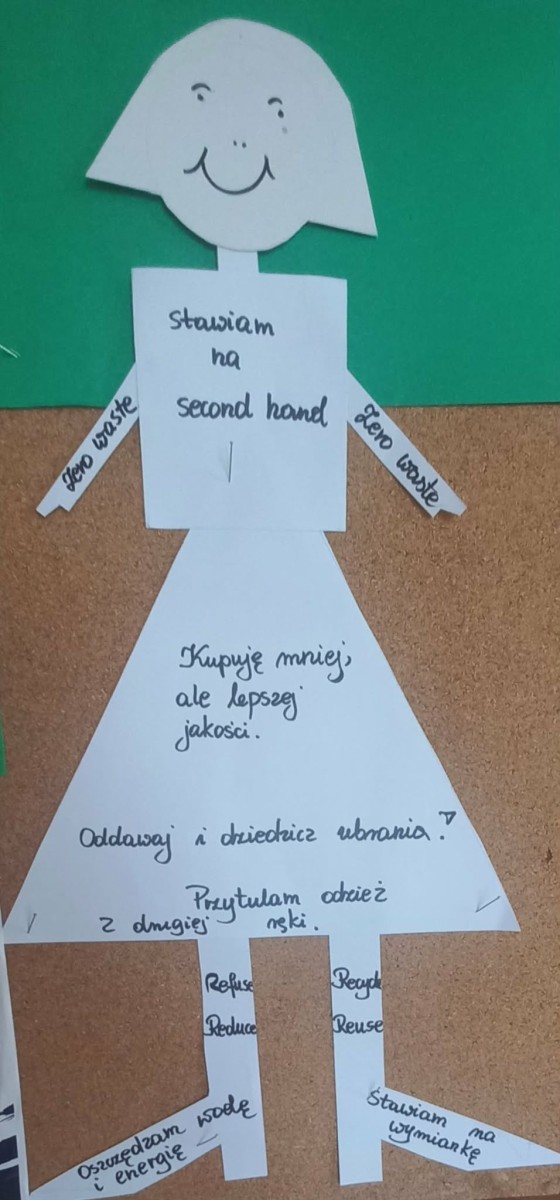 Stawiam
na
second hand
Zero waste
Zero waste
Kupuję mniej,
ale lepszej
jakości.
Oddawaj i dziedzicz ubrania.
Przytulam odzież
z drugiej ręki.
Refuse
Reduce
Recycle
Reuse
Oszczędzam wodę
i energię
Stawiam na
wymiankę